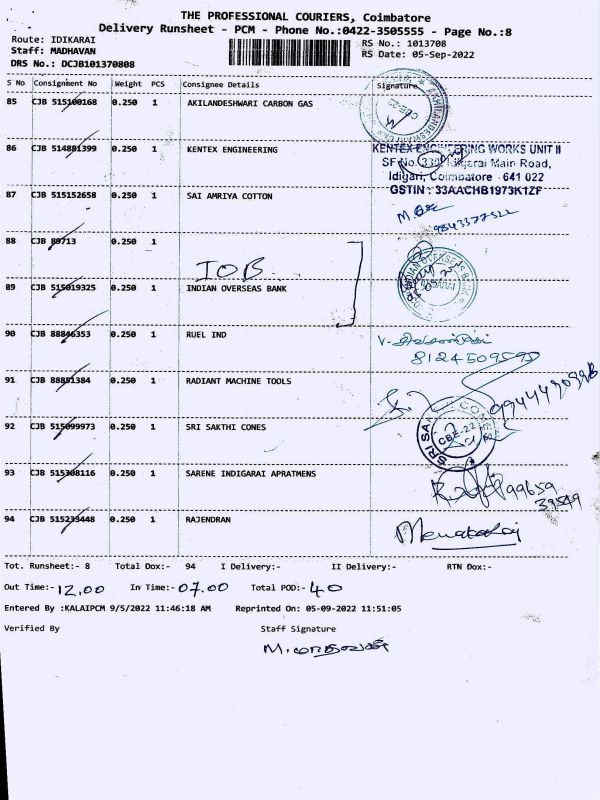 THE PROFESSIONAL COURIERS, Coimbatore
Delivery Runsheet - PCM - Phone No.:0422-3505555 - Page No.:8
Route: IDIKARAI
RS No.: 1013708
Staff: MADHAVAN
RS Date: 05-Sep-2022
DRS No.: DCJB101370808
S No Consignment No Weight PCS Consignee Details Signature
85 CJB 515100168 0.250 1 AKILANDESHWARI CARBON GAS
86 CJB 514881399 0.250 1 KENTEX ENGINEERING
KENTEX ENGINEERING WORKS UNIT II
SF No. 330, Idigarai Main Road,
Idigari, Coimbatore - 641 022
GSTIN : 33AACHB1973K1ZF
87 CJB 515152658 0.250 1 SAI AMRIYA COTTON
9843377522
88 CJB 89713 0.250 1
IOB
89 CJB 515019325 0.250 1 INDIAN OVERSEAS BANK
90 CJB 88846353 0.250 1 RUEL IND
91 CJB 88851384 0.250 1 RADIANT MACHINE TOOLS
92 CJB 515099973 0.250 1 SRI SAKTHI CONES
CBE-22
93 CJB 515308116 0.250 1 SARENE INDIGARAI APRATMENS
94 CJB 515233448 0.250 1 RAJENDRAN
Tot. Runsheet:- 8 Total Dox:- 94 I Delivery:- II Delivery:- RTN Dox:-
Out Time:- 12.00 In Time:- 07.00 Total POD:- 40
Entered By :KALAIPCM 9/5/2022 11:46:18 AM Reprinted On: 05-09-2022 11:51:05
Verified By Staff Signature